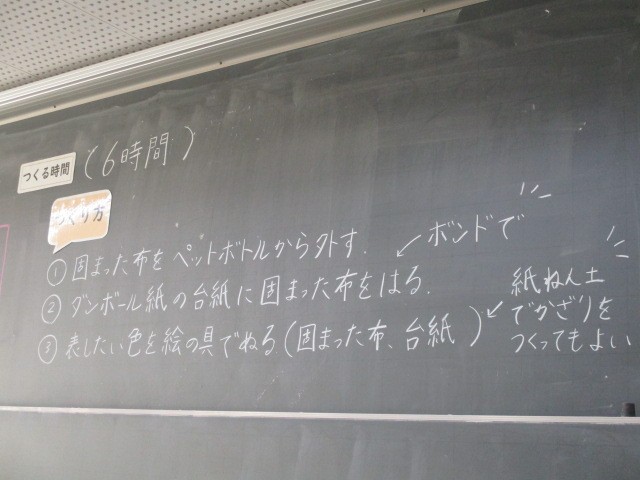 つくる時間 (6時間)
つくり方
① 固まった布をペットボトルから外す.
② ダンボール紙の台紙に固まった布をはる. ↙ ボンドで
③ 表したい色を絵の具でぬる(固まった布、台紙) ↙ 紙ねん土
でかざりを
つくってもよい